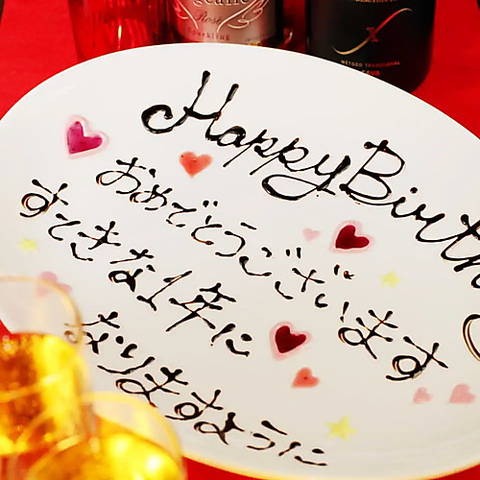 Rosé
Sparkling
MÉTODO TRADICIONAL
CAVA
Happy Birth
おめでとうございます
すてきな1年に
なりますように